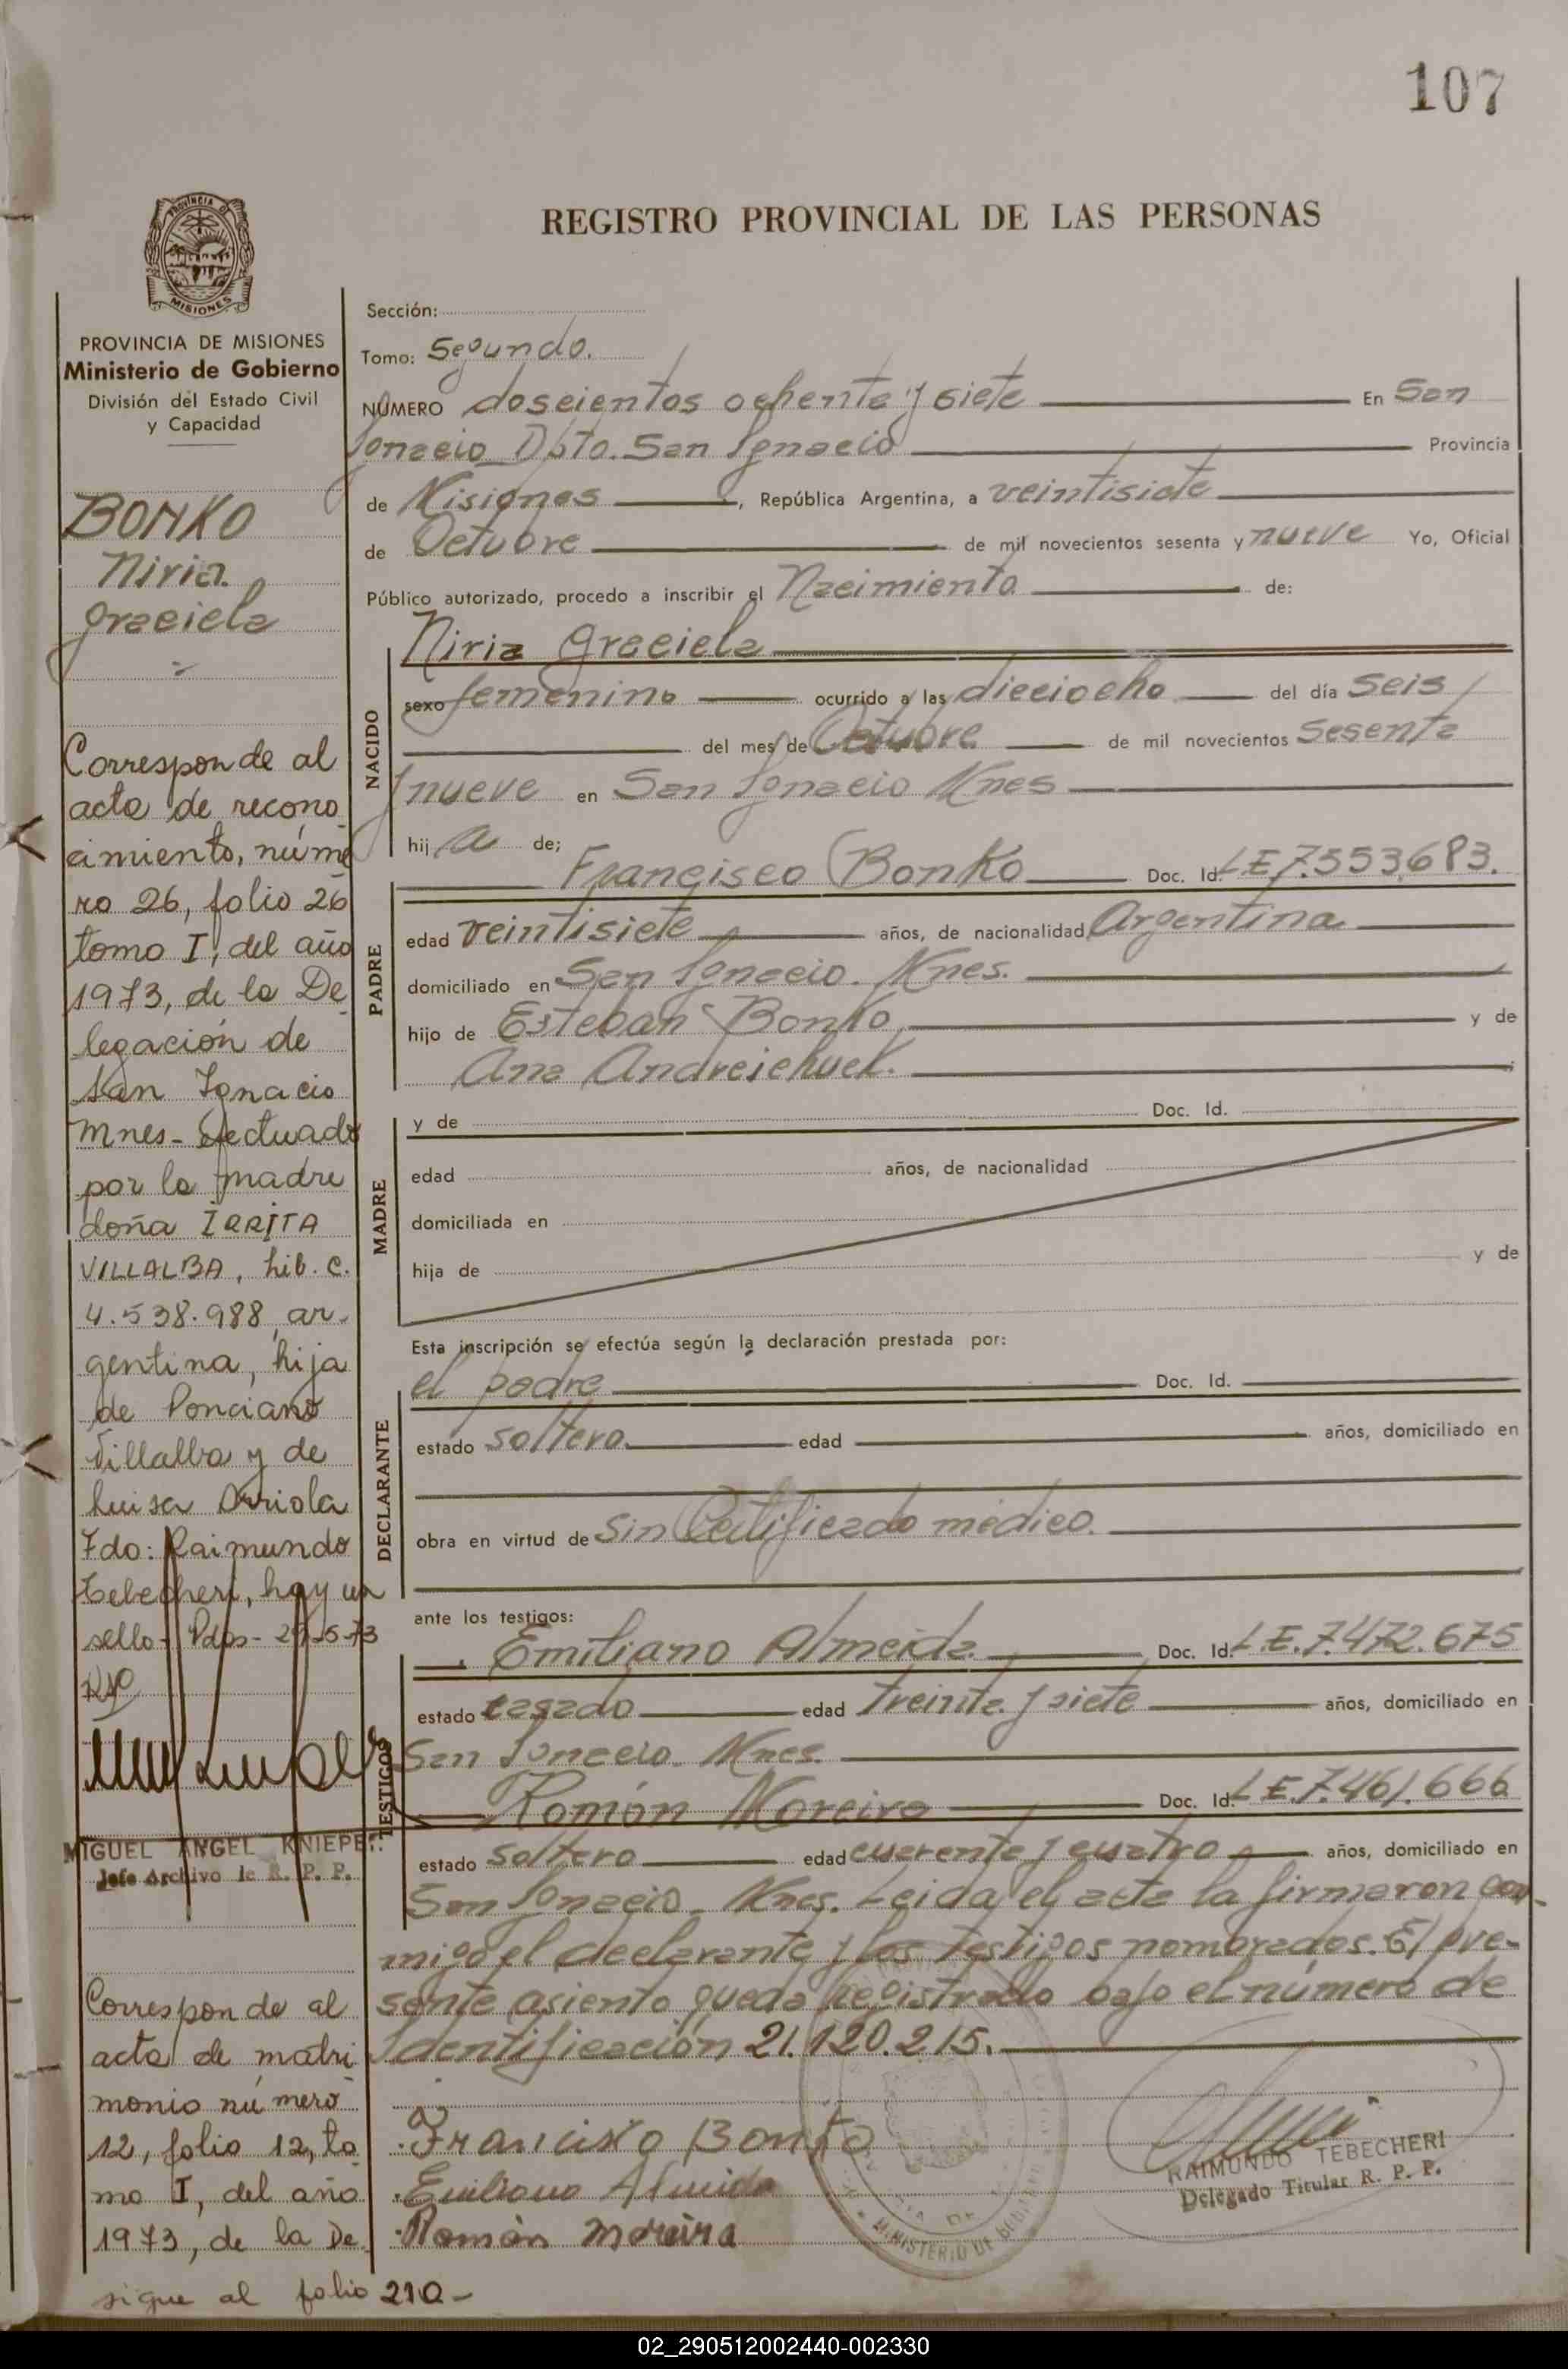 107
REGISTRO PROVINCIAL DE LAS PERSONAS
PROVINCIA DE
MISIONES
PROVINCIA DE MISIONES
Ministerio de Gobierno
División del Estado Civil
y Capacidad
BONKO
Niria
Graciela
Corresponde al
acta de recono
cimiento, núme
ro 26, folio 26
tomo I, del año
1973, de la De
legación de
San Ignacio
Mnes- Efectuado
por la madre
doña IRRITA
VILLALBA, Lib. C.
4.538.988, ar-
gentina, hija
de Ponciano
Villalba y de
Luisa Arriola
Fdo: Raimundo
Tebecheri, hay un
sello- Pdas- 29-5-73
MIGUEL ANGEL KNIEPER
Jefe Archivo de R. P. P.
Corresponde al
acta de matri
monio número
12, folio 12, to
mo I, del año
1973, de la De-
sigue al folio 210-
Sección:
Tomo: Segundo.
NÚMERO doscientos ochenta y siete En San
Ignacio Dpto. San Ignacio Provincia
de Misiones, República Argentina, a veintisiete
de Octubre de mil novecientos sesenta y nueve Yo, Oficial
Público autorizado, procedo a inscribir el Nacimiento de:
NACIDO
Niria Graciela
sexo femenino ocurrido a las dieciocho del día seis
del mes de Octubre de mil novecientos sesenta
y nueve en San Ignacio Mnes
hija de;
PADRE
Francisco Bonko Doc. Id. L.E.7.553.683.
edad veintisiete años, de nacionalidad Argentina
domiciliado en San Ignacio. Mnes.
hijo de Esteban Bonko y de
Ana Andreichuck. ;
MADRE
y de Doc. Id.
edad años, de nacionalidad
domiciliada en
hija de y de
Esta inscripción se efectúa según la declaración prestada por:
DECLARANTE
el padre Doc. Id.
estado soltero edad años, domiciliado en
obra en virtud de Sin Certificado médico.
ante los testigos:
TESTIGOS
Emiliano Almeida Doc. Id. L.E.7.472.675
estado casado edad treinta y siete años, domiciliado en
San Ignacio. Mnes.
Román Moreira Doc. Id. L.E.7.461.666
estado soltero edad cuarenta y cuatro años, domiciliado en
San Ignacio. Mnes. Leida el acta la firmaron con-
migo el declarante y los testigos nombrados. El pre-
sente asiento queda registrado bajo el número de
Identificación 21.120.215.
Francisco Bonko
Emiliano Almeida
Román Moreira
MINISTERIO DE GOBIERNO
RAIMUNDO TEBECHERI
Delegado Titular R. P. P.
02_290512002440-002330